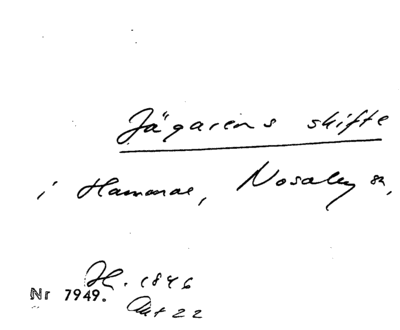 Jägarens skifte
i Hammar, Nosaby sn,
H. 1846
Nr 7949.
Akt 22